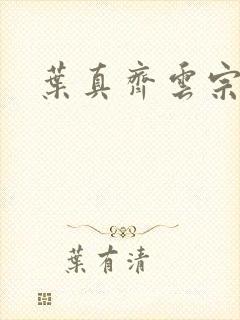 葉真齊雲宗
葉有清